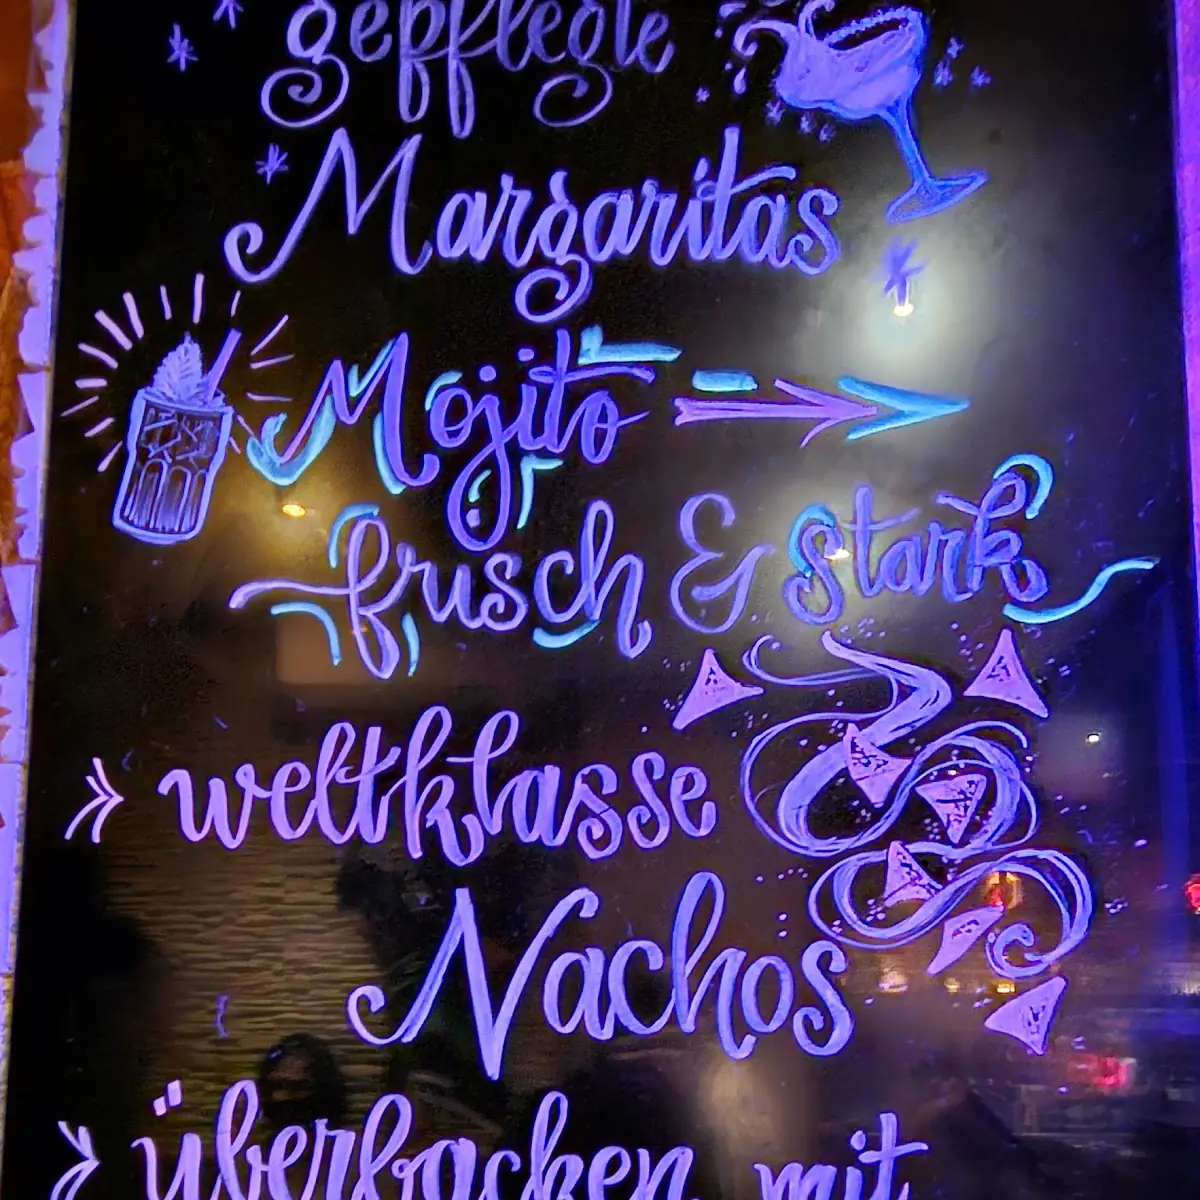 gepflegte
Margaritas
Mojito
frisch & stark
weltklasse
Nachos
überbacken mit